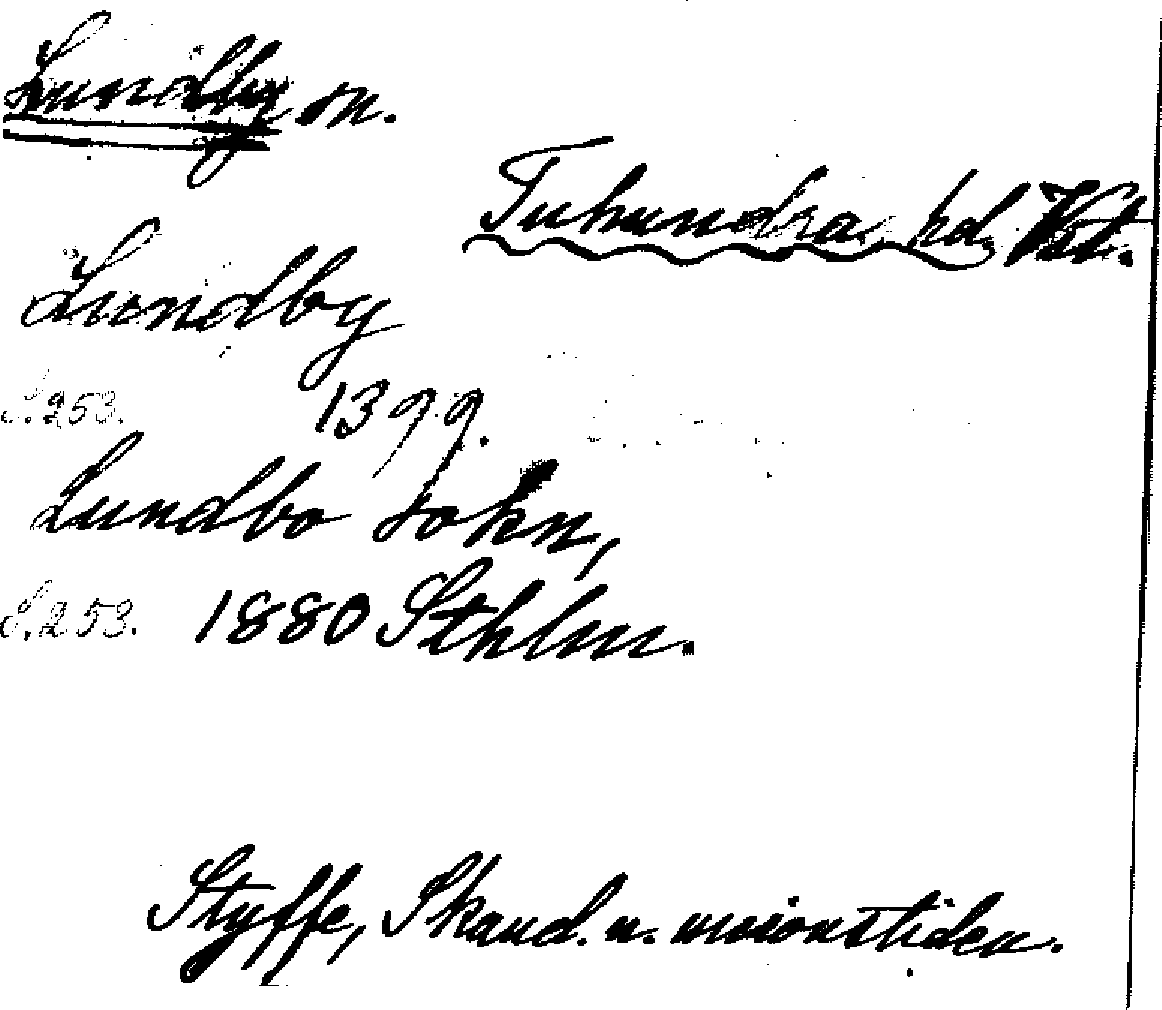 Lundby sn.
Tuhundra hd. Vstm.
Lundby
S. 253. 1399.
Lundbo sokn,
S. 253. 1880 Sthlm.
Styffe, Skand. u. unionstiden.